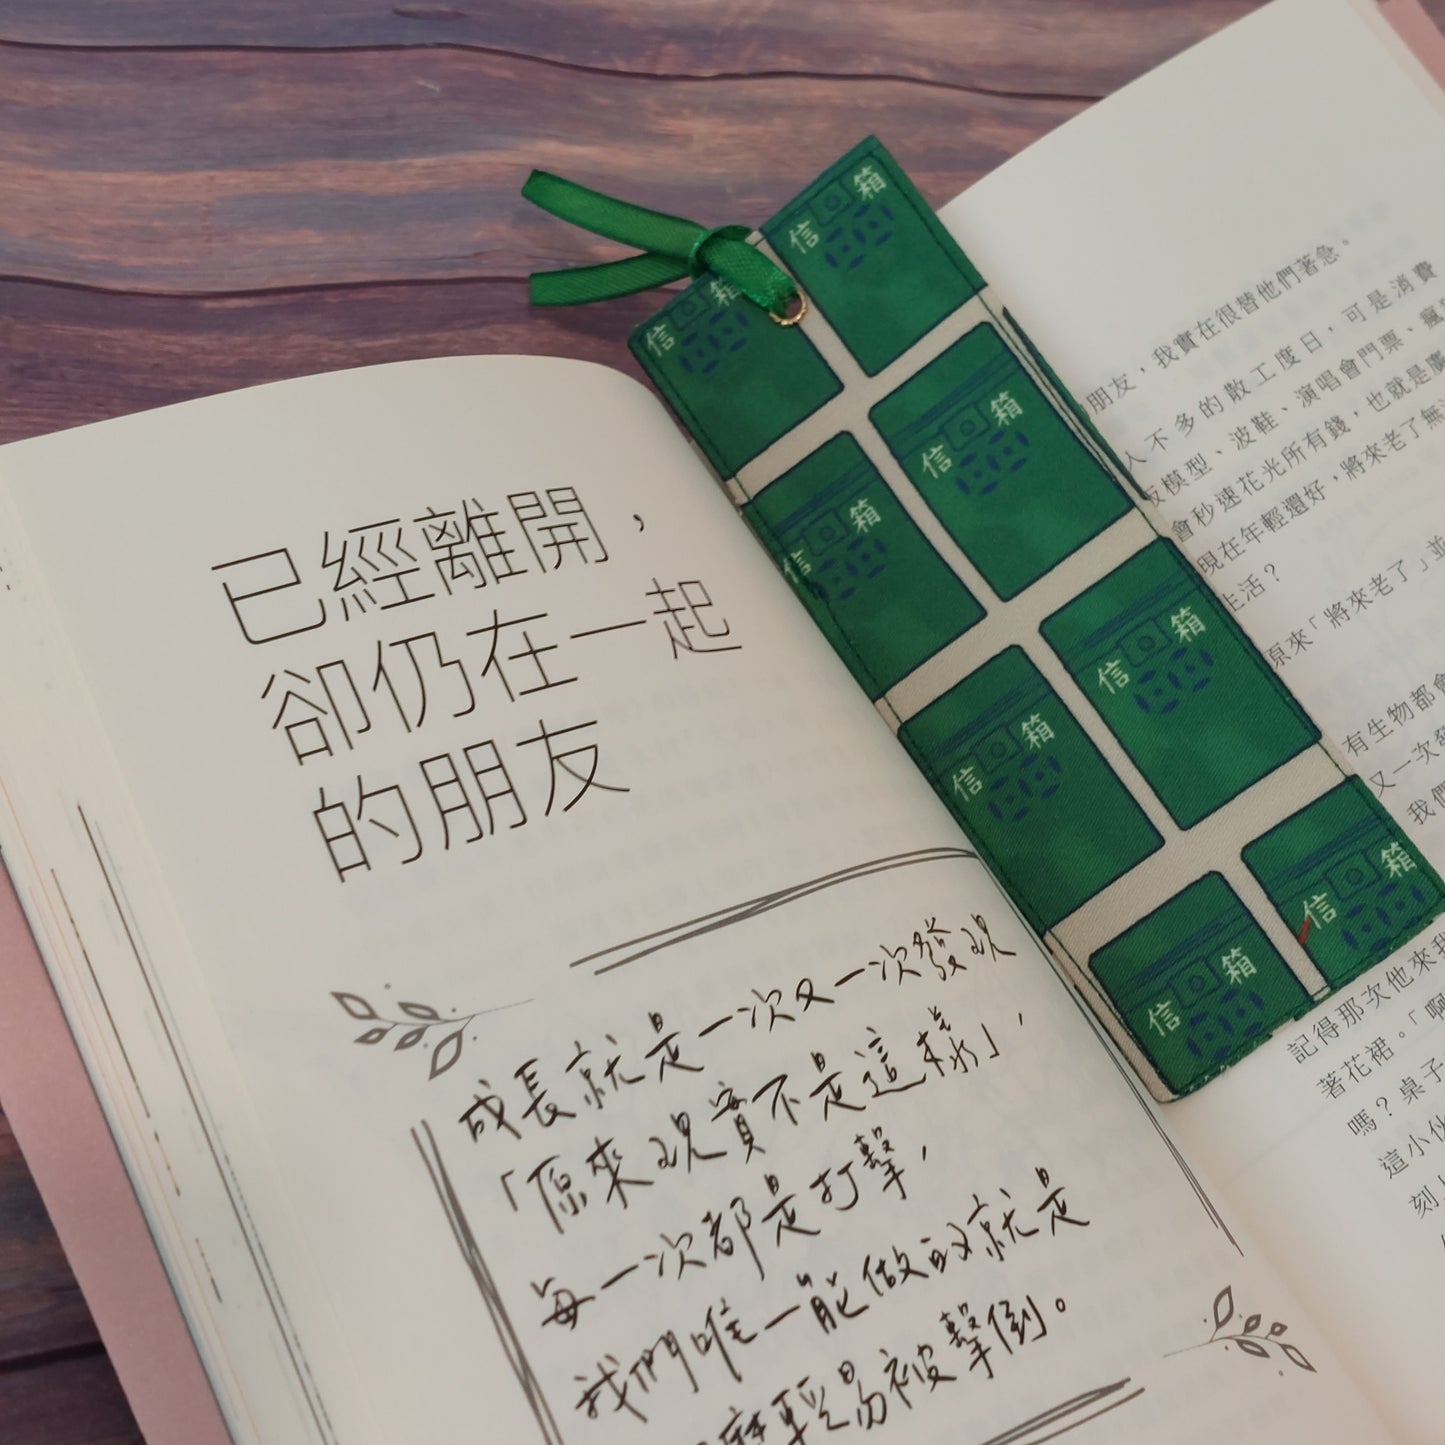 已經離開，
卻仍在一起
的朋友
成長就是一次又一次發現
「原來現實不是這樣」，
每一次都是打擊，
我們唯一能做的就是
輕易被擊倒。
信箱
信箱
信箱
信箱
信箱
信箱
信箱
信箱
朋友，我實在很替他們著急。
人不多的散工度日，可是消費
模型、波鞋、演唱會門票、瘋
會秒速花光所有錢，也就是廣
現在年輕還好，將來老了無
生活？
原來「將來老了」並
有生物都會
又一次發
我們
記得那次他來我
著花裙。「啊
嗎？桌子
這小伙
刻